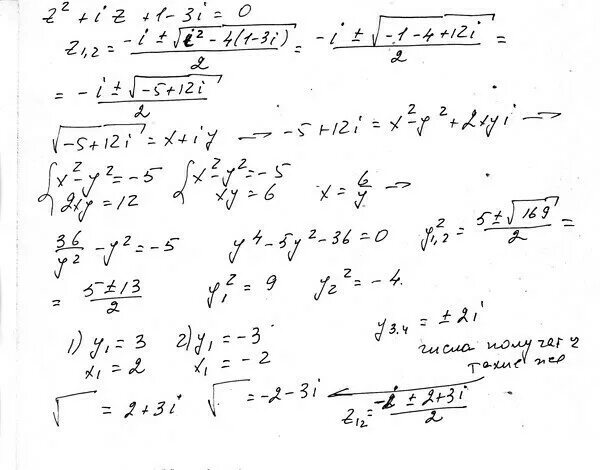 z² + iz + 1 - 3i = 0
z₁,₂ = (-i ± √(i² - 4(1-3i)))/2 = (-i ± √(-1 - 4 + 12i))/2 =
= (-i ± √(-5+12i))/2
√(-5+12i) = x+iy → -5+12i = x²-y²+2xyi →
{x²-y² = -5 {x²-y² = -5
2xy = 12 xy = 6 x = 6/y →
36/y² - y² = -5 y⁴ - 5y² - 36 = 0 y²₁,₂ = (5 ± √169)/2 =
= (5 ± 13)/2 y₁² = 9 y₂² = -4
1) y₁ = 3 2) y₁ = -3 y₃.₄ = ±2i
x₁ = 2 x₁ = -2 числа получат
такие же
√ = 2+3i √ = -2-3i z₁₂ = (-i ± 2+3i)/2